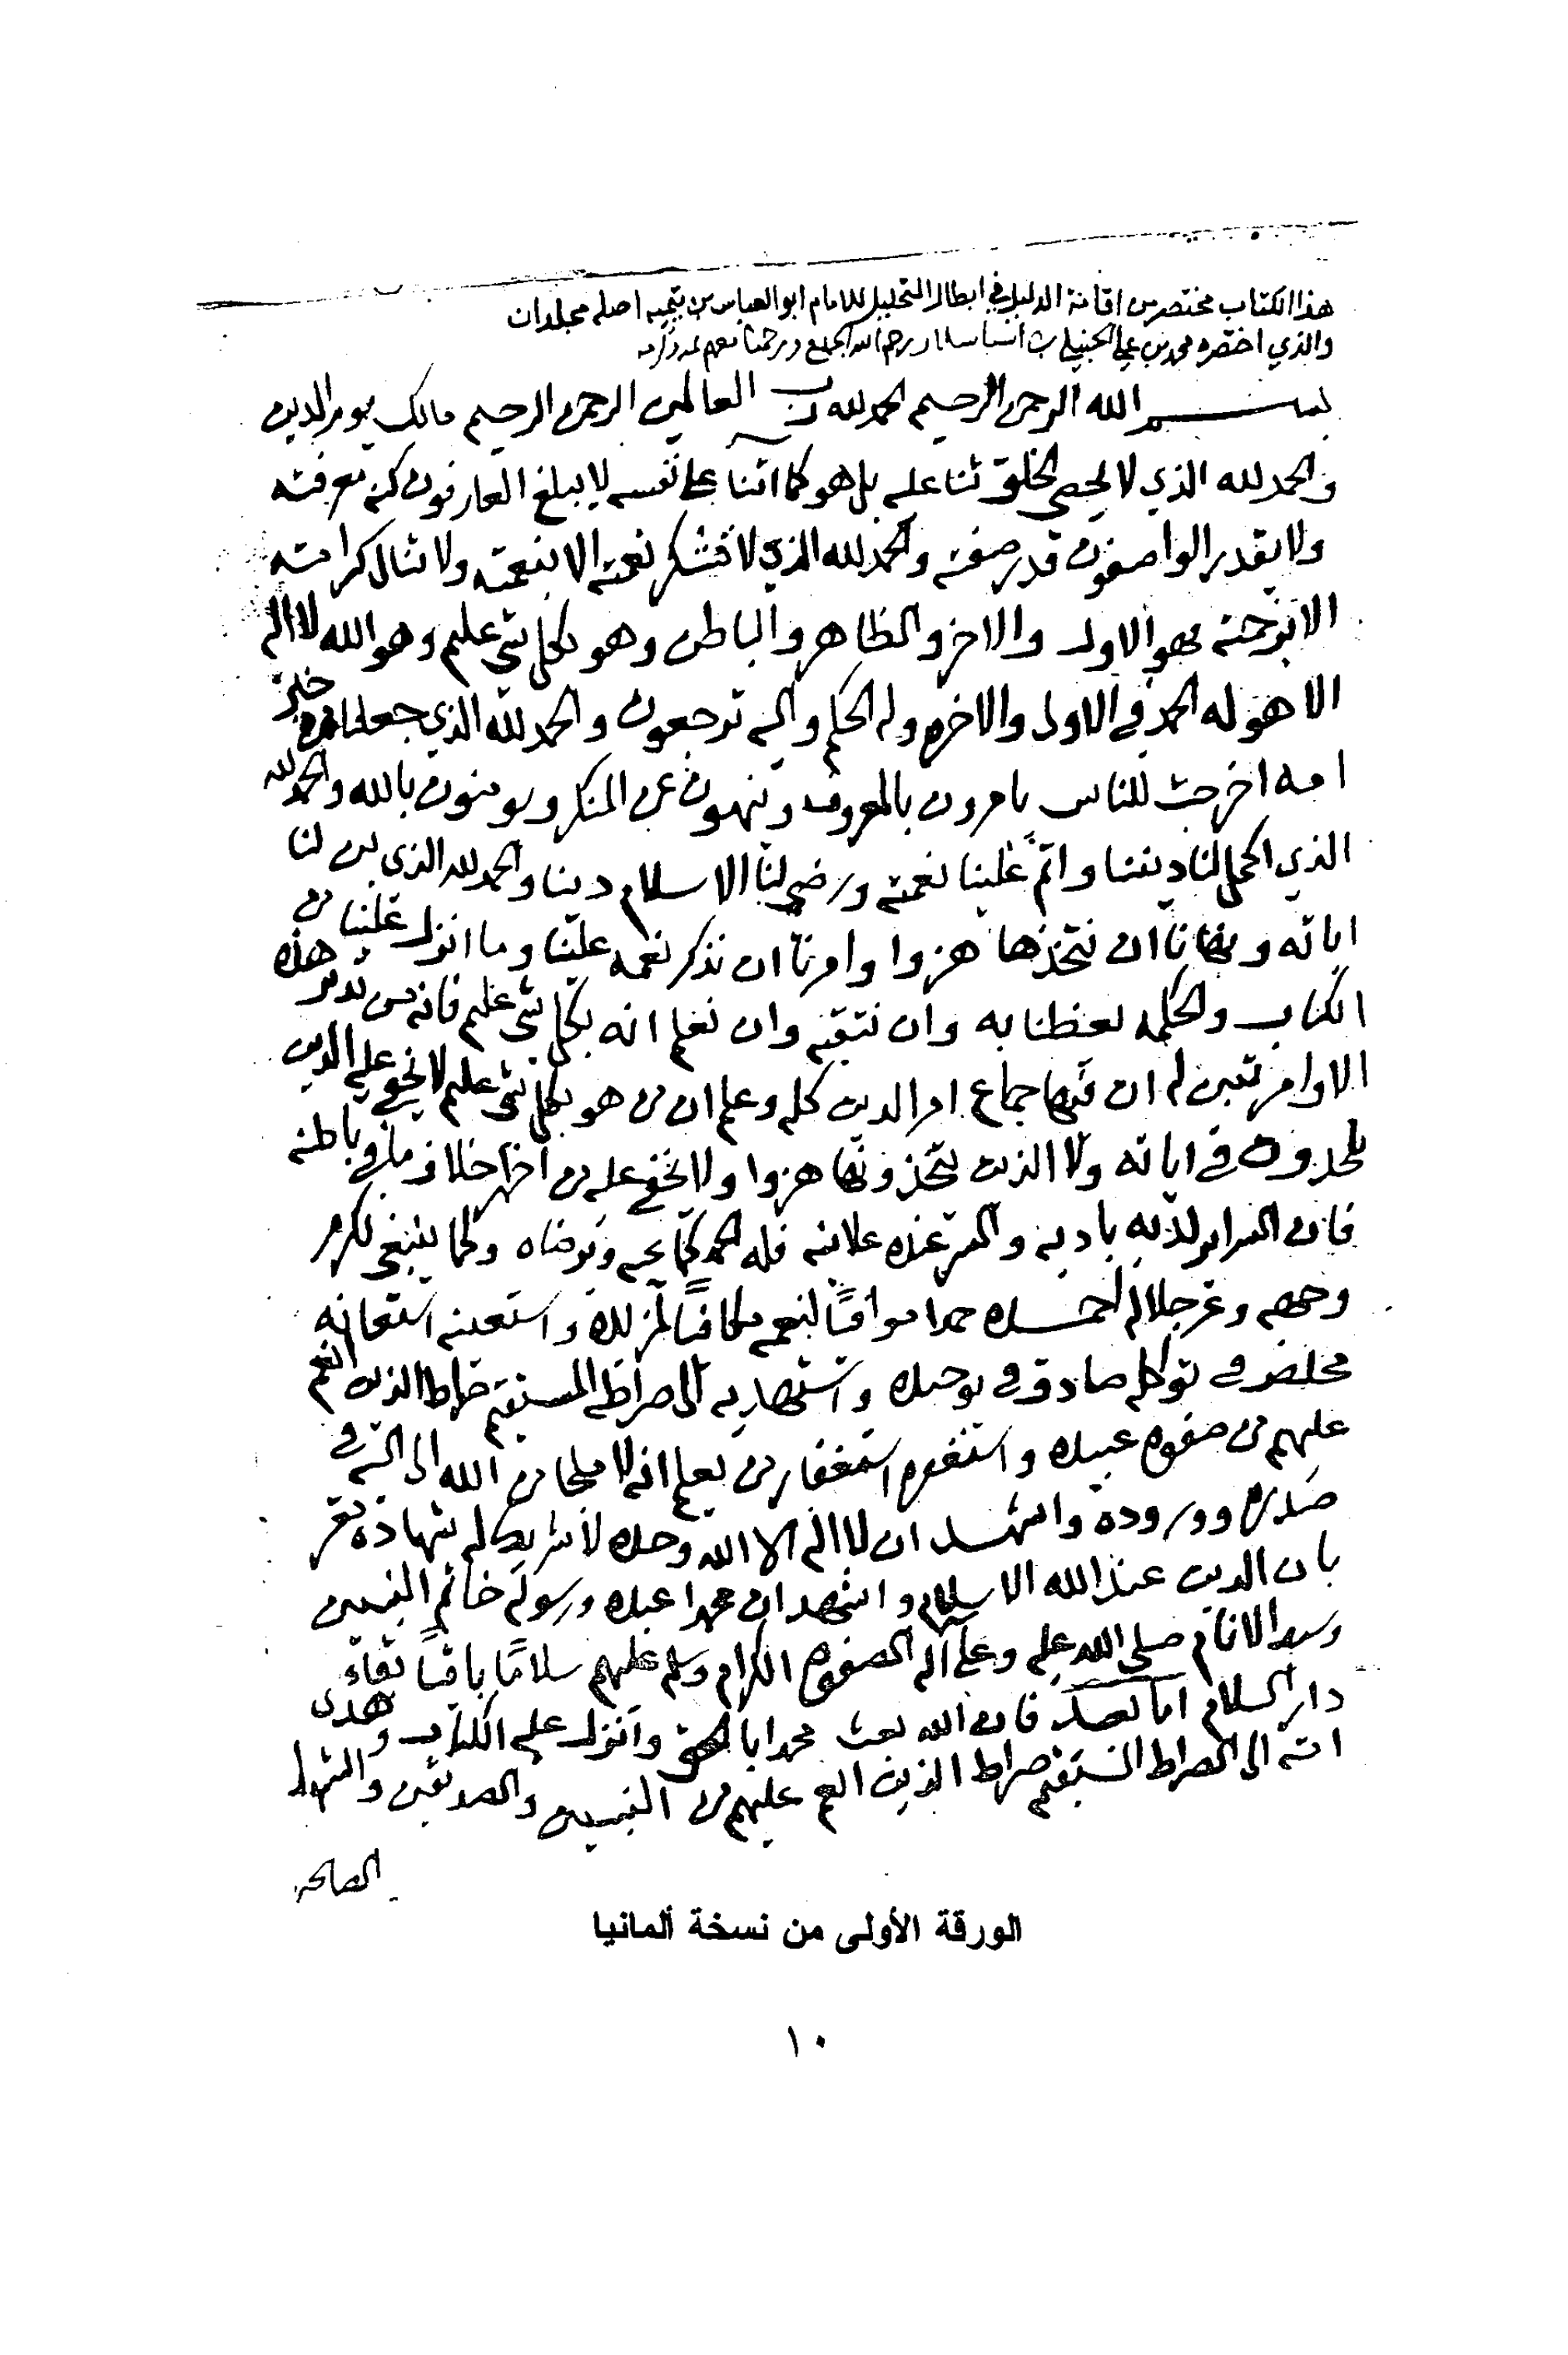 هذا الكتاب مختصر من اقامة الدليل في ابطال التحليل للامام ابو العباس بن تيميه اصله مجلدان
والذي اختصره محمد بن علي الحنبلي
بسم الله الرحمن الرحيم الحمد لله رب العالمين الرحمن الرحيم مالك يوم الدين
والحمد لله الذي لا يحصي الخلق ثنا عليه بل هو كما اثنا على نفسه لا يبلغ العارفون كنه معرفته
ولا يقدر الواصفون قدر صفته والحمد لله الذي لا تشكر نعمته الا بنعمته ولا تنال كرامته
الا برحمته فهو الاول والاخر والظاهر والباطن وهو بكل شي عليم وهو الله لا اله
الا هو له الحمد في الاولى والاخره وله الحكم واليه ترجعون والحمد لله الذي جعلنا من خير
امه اخرجت للناس يامرون بالمعروف وينهون عن المنكر ويومنون بالله والحمد لله
الذي اكمل لنا ديننا واتم علينا نعمته ورضي لنا الاسلام دينا والحمد لله الذي بين لنا
اياته ونهانا ان نتخذها هزوا وامرنا ان نذكر نعمه علينا وما انزل علينا من
الكتاب والحكمه يعظنا به وان نتقيه وان نعلم انه بكل شي عليم فانه من تدبر هذه
الاوامر تبين له ان فيها جماع امر الدين كله وعلم ان من هو بكل شي عليم لا يخفى عليه الذين
يلحدون في اياته ولا الذين يتخذونها هزوا ولا يخفى عليه من اظهر خلاف ما في باطنه
فان السراير لديه باديه والسر عنده علانيه فله الحمد كما يحبه ويرضاه وكما ينبغي لكرم
وجهه وعز جلاله احمده حمدا موافيًا لنعمه مكافيًا لمزيده واستعينه استعانه
مخلص في توكله صادق في توحيده واستهديه الى صراطه المستقيم صراط الذين انعم
عليهم من صفوه عبيده واستغفره استغفار من يعلم انه لا ملجا من الله الا اليه في
صدره ووروده واشهد ان لا اله الا الله وحده لا شريك له شهادة تقر
بان الدين عند الله الاسلام واشهد ان محمدا عبده ورسوله خاتم النبيين
وسيد الانام صلى الله عليه وعلى آله الصفوه الكرام وسلم عليهم سلامًا باقيًا بقاء
دار السلام اما بعد فان الله بعث محمدا بالحق وانزل عليه الكتاب وهدى
امته الى الصراط المستقيم صراط الذين انعم عليهم من النبيين والصديقين والشهدا
الصالحين
الورقة الأولى من نسخة ألمانيا
١٠